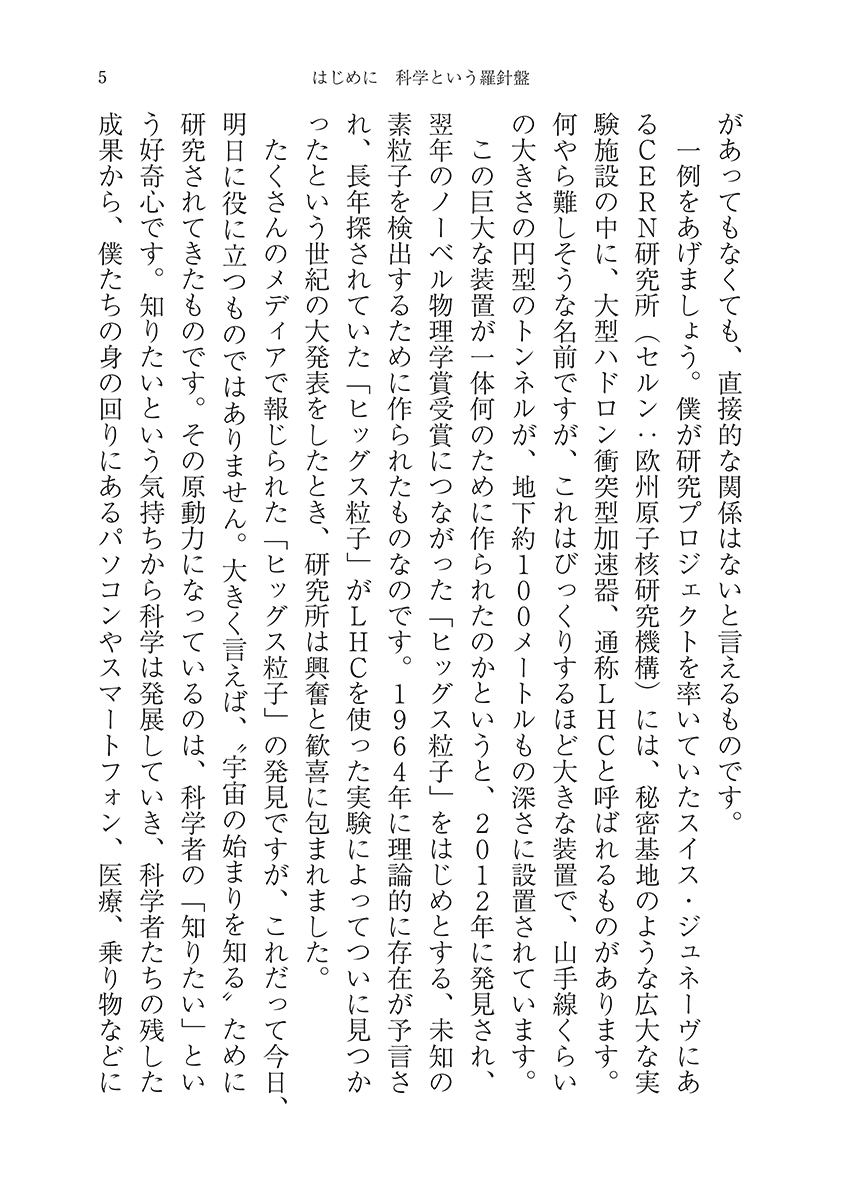 5
はじめに　科学という羅針盤
があってもなくても、直接的な関係はないと言えるものです。
　一例をあげましょう。僕が研究プロジェクトを率いていたスイス・ジュネーヴにあ
るCERN研究所（セルン：欧州原子核研究機構）には、秘密基地のような広大な実
験施設の中に、大型ハドロン衝突型加速器、通称LHCと呼ばれるものがあります。
何やら難しそうな名前ですが、これはびっくりするほど大きな装置で、山手線くらい
の大きさの円型のトンネルが、地下約100メートルもの深さに設置されています。
　この巨大な装置が一体何のために作られたのかというと、2012年に発見され、
翌年のノーベル物理学賞受賞につながった「ヒッグス粒子」をはじめとする、未知の
素粒子を検出するために作られたものなのです。1964年に理論的に存在が予言さ
れ、長年探されていた「ヒッグス粒子」がLHCを使った実験によってついに見つか
ったという世紀の大発表をしたとき、研究所は興奮と歓喜に包まれました。
　たくさんのメディアで報じられた「ヒッグス粒子」の発見ですが、これだって今日、
明日に役に立つものではありません。大きく言えば、〝宇宙の始まりを知る〟ために
研究されてきたものです。その原動力になっているのは、科学者の「知りたい」とい
う好奇心です。知りたいという気持ちから科学は発展していき、科学者たちの残した
成果から、僕たちの身の回りにあるパソコンやスマートフォン、医療、乗り物などに